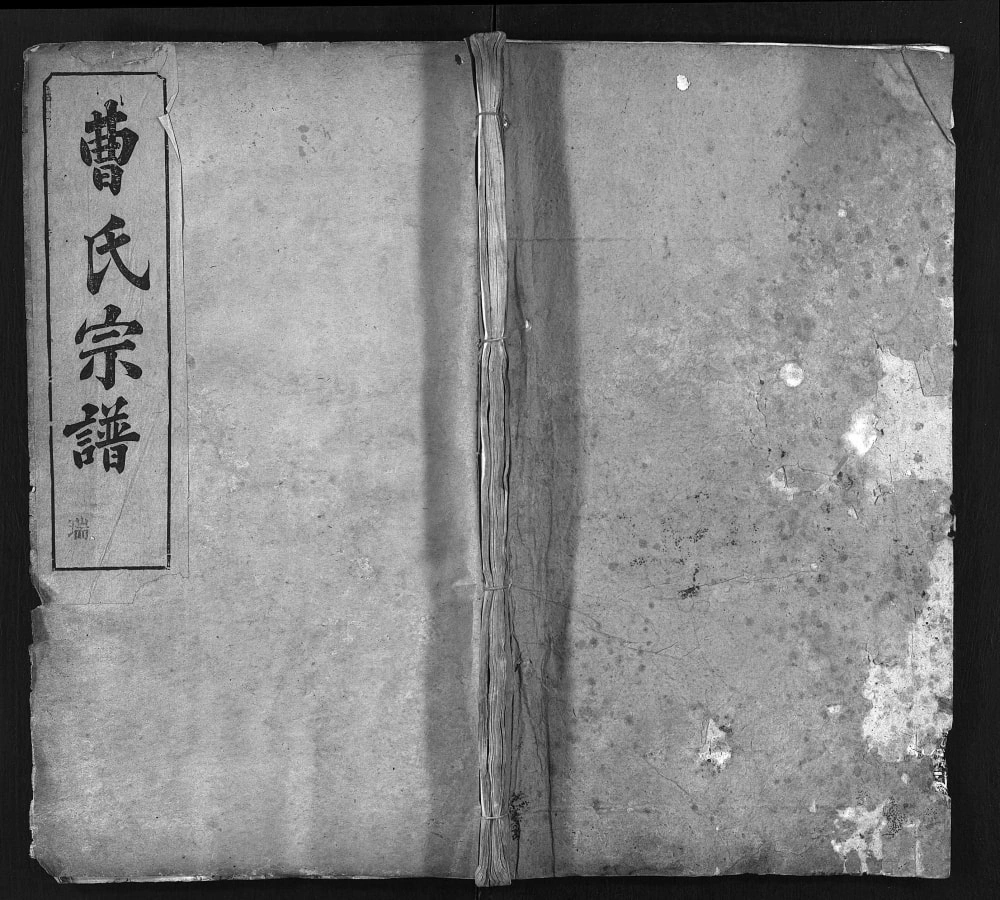 曹氏宗譜
瑞